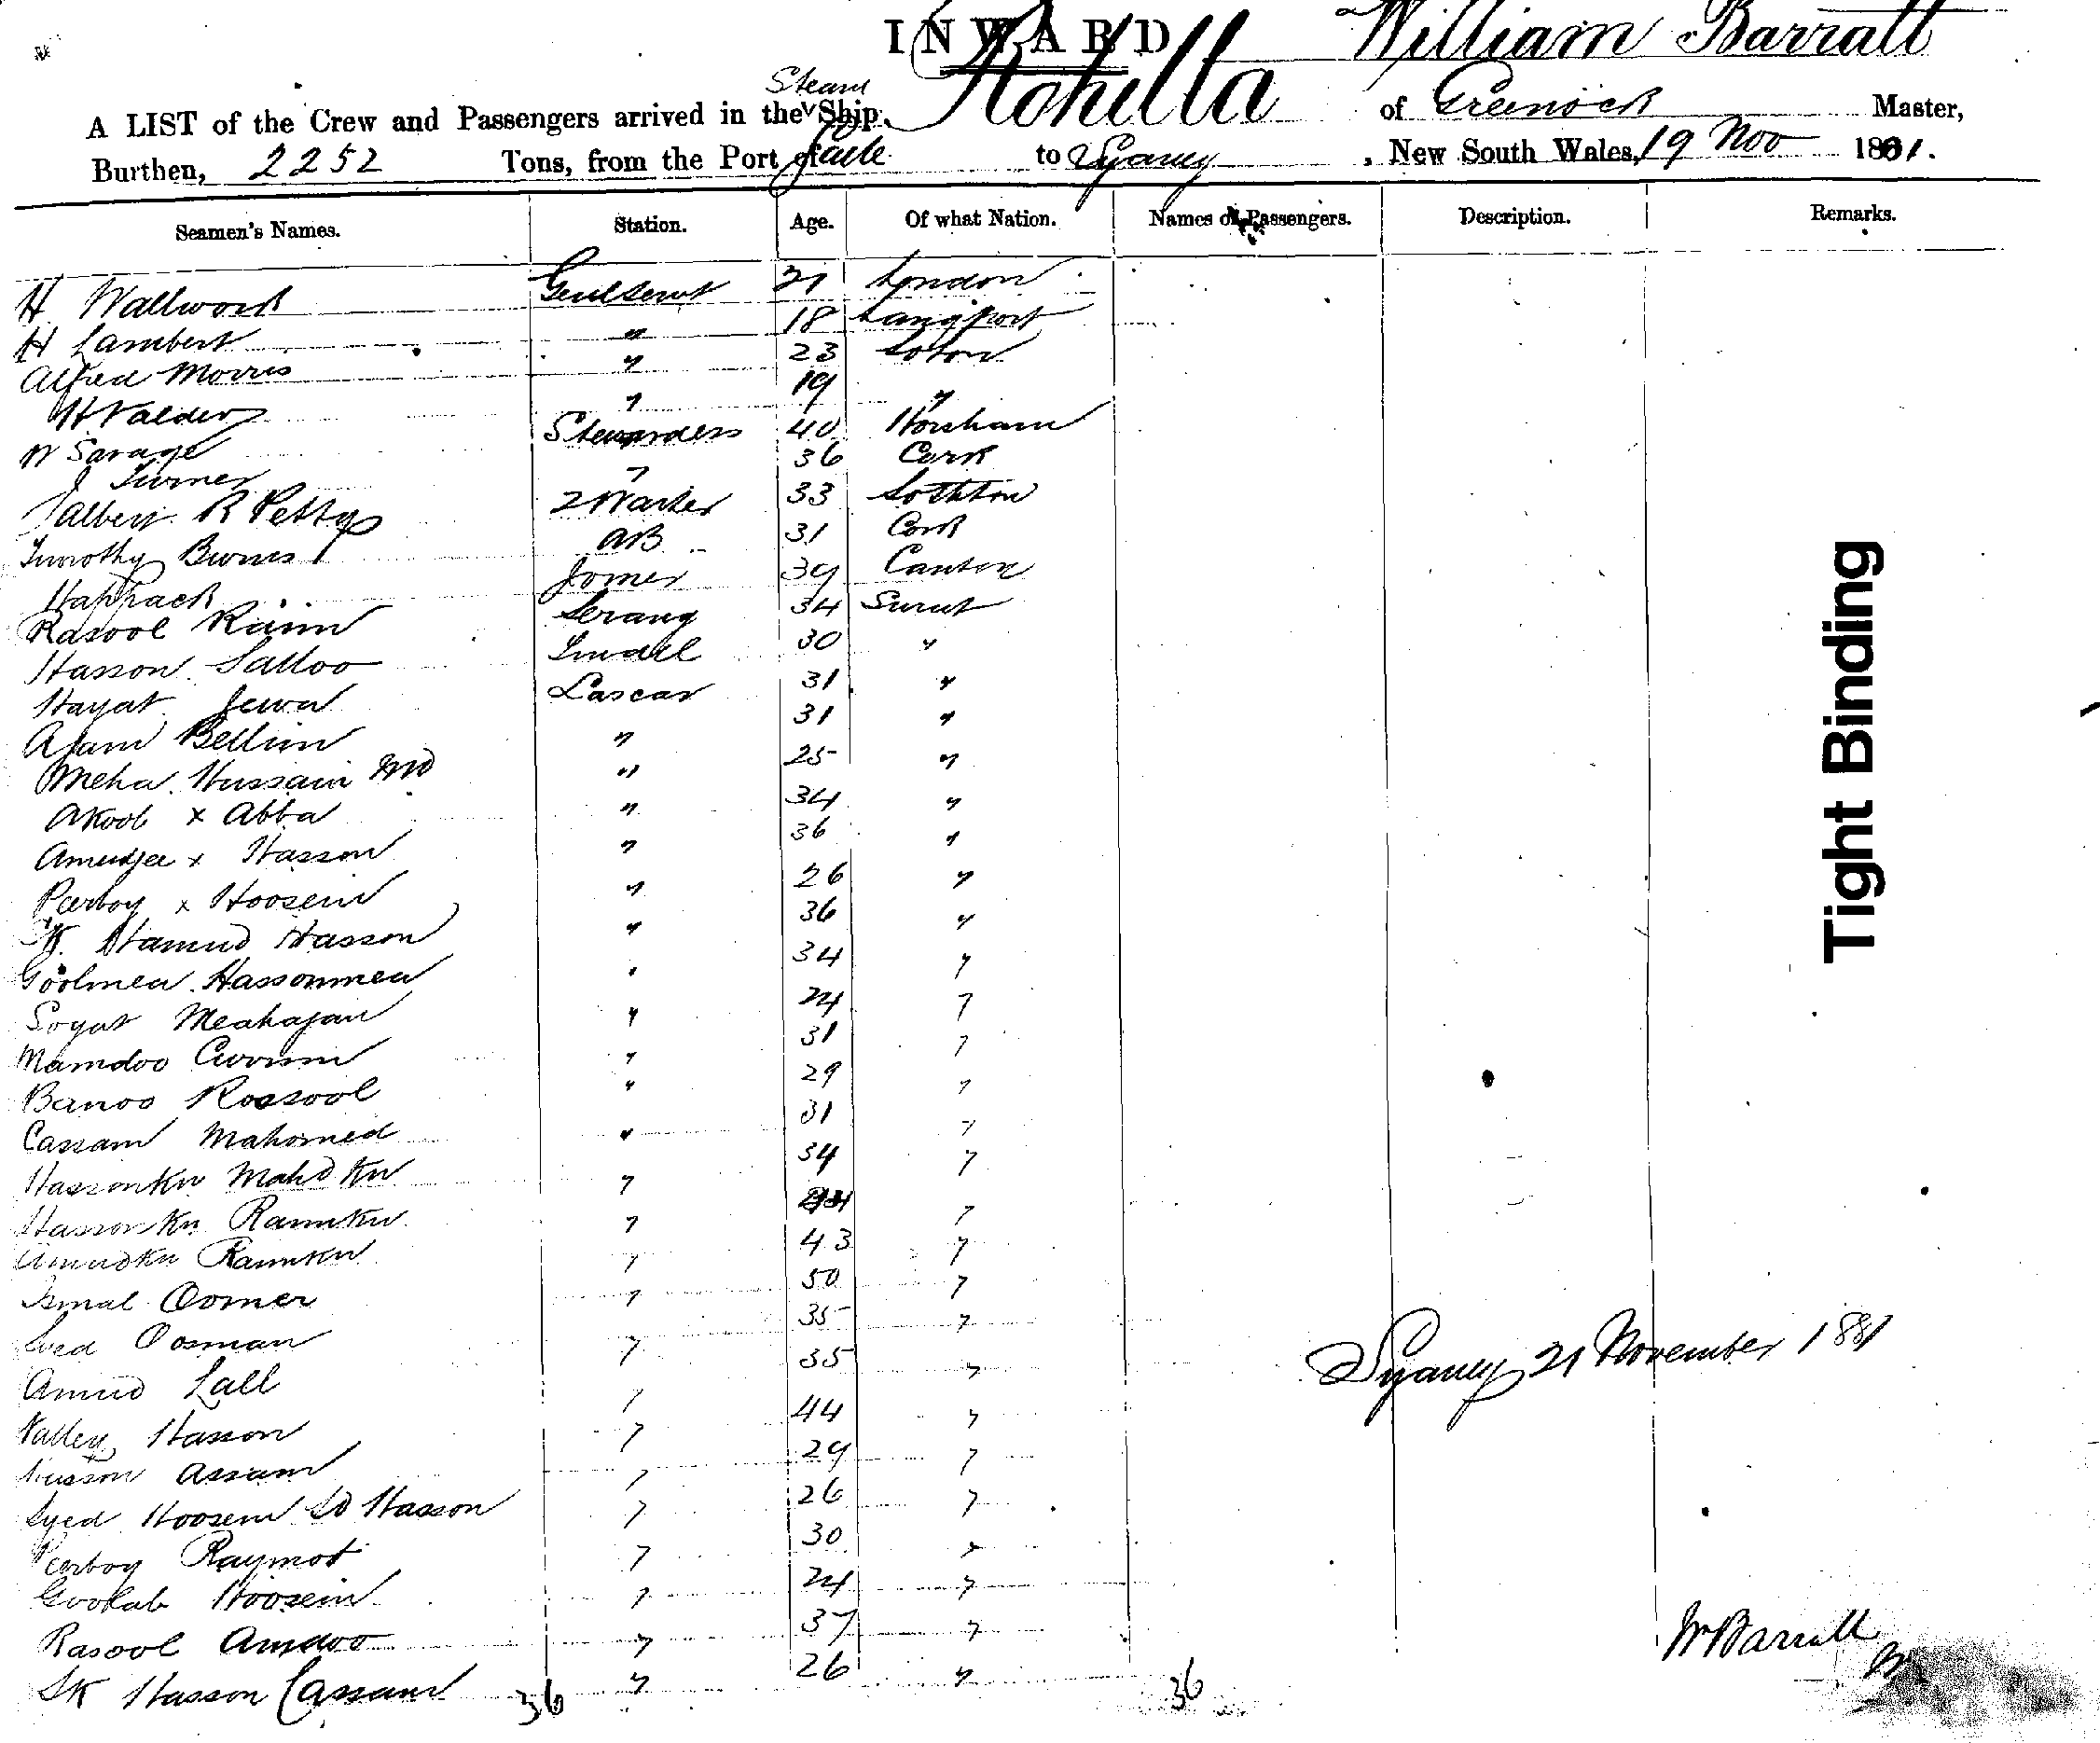 INWARD
A LIST of the Crew and Passengers arrived in the Steam Ship, Rohilla of Greenock William Barratt Master,
Burthen, 2252 Tons, from the Port of Galle to Sydney, New South Wales, 19 Nov 1881.
Seamen's Names. Station. Age. Of what Nation. Names of Passengers. Description. Remarks.
H Wallwork Genl Servt 21 London
H Lambert " 18 Langport
Alfred Morris " 23 Soton
H Valder " 19 "
W Savage Stewardess 40 Horsham
J Turner " 36 Cork
Albert R Petty 2 Master 33 Sothton
Timothy Burns AB 31 Cork
Joiner 39 Canton
Rasool Serang 34 Surat
Hasson Salloo Tindal 30 "
Hayat Jewa Lascar 31 "
Ajam Bellim " 31 "
Meha Hussain Md " 25 "
Akoob x Abba " 34 "
Amudjee x Hasson " 36 "
Peerboy x Hoosein " 26 "
Sk. Hamud Hasson " 36 "
Goolmea Hassonmea " 34 "
Soyat Meahajan " 24 "
Mamdoo Currim " 31 "
Banoo Rossool " 29 "
Cassam Mahomed " 31 "
Hassonkn Mahd Kn " 34 "
Hasson Kn Ramkn " "
Amudkn Ramkn " 43 "
Ismal Oomer " 50 "
Syed Oosman " 35 "
Amud Lall " 35 "
Valley Hasson " 44 "
Husson Assam " 29 "
Syed Hoosein Sd Hasson " 26 "
Peerboy Raymot " 30 "
Goolab Hoosein " 24 "
Rasool Amdoo " 37 "
SK Hasson Cassam " 26 "
36 36
Sydney 21 November 1881
Wm Barratt
Tight Binding